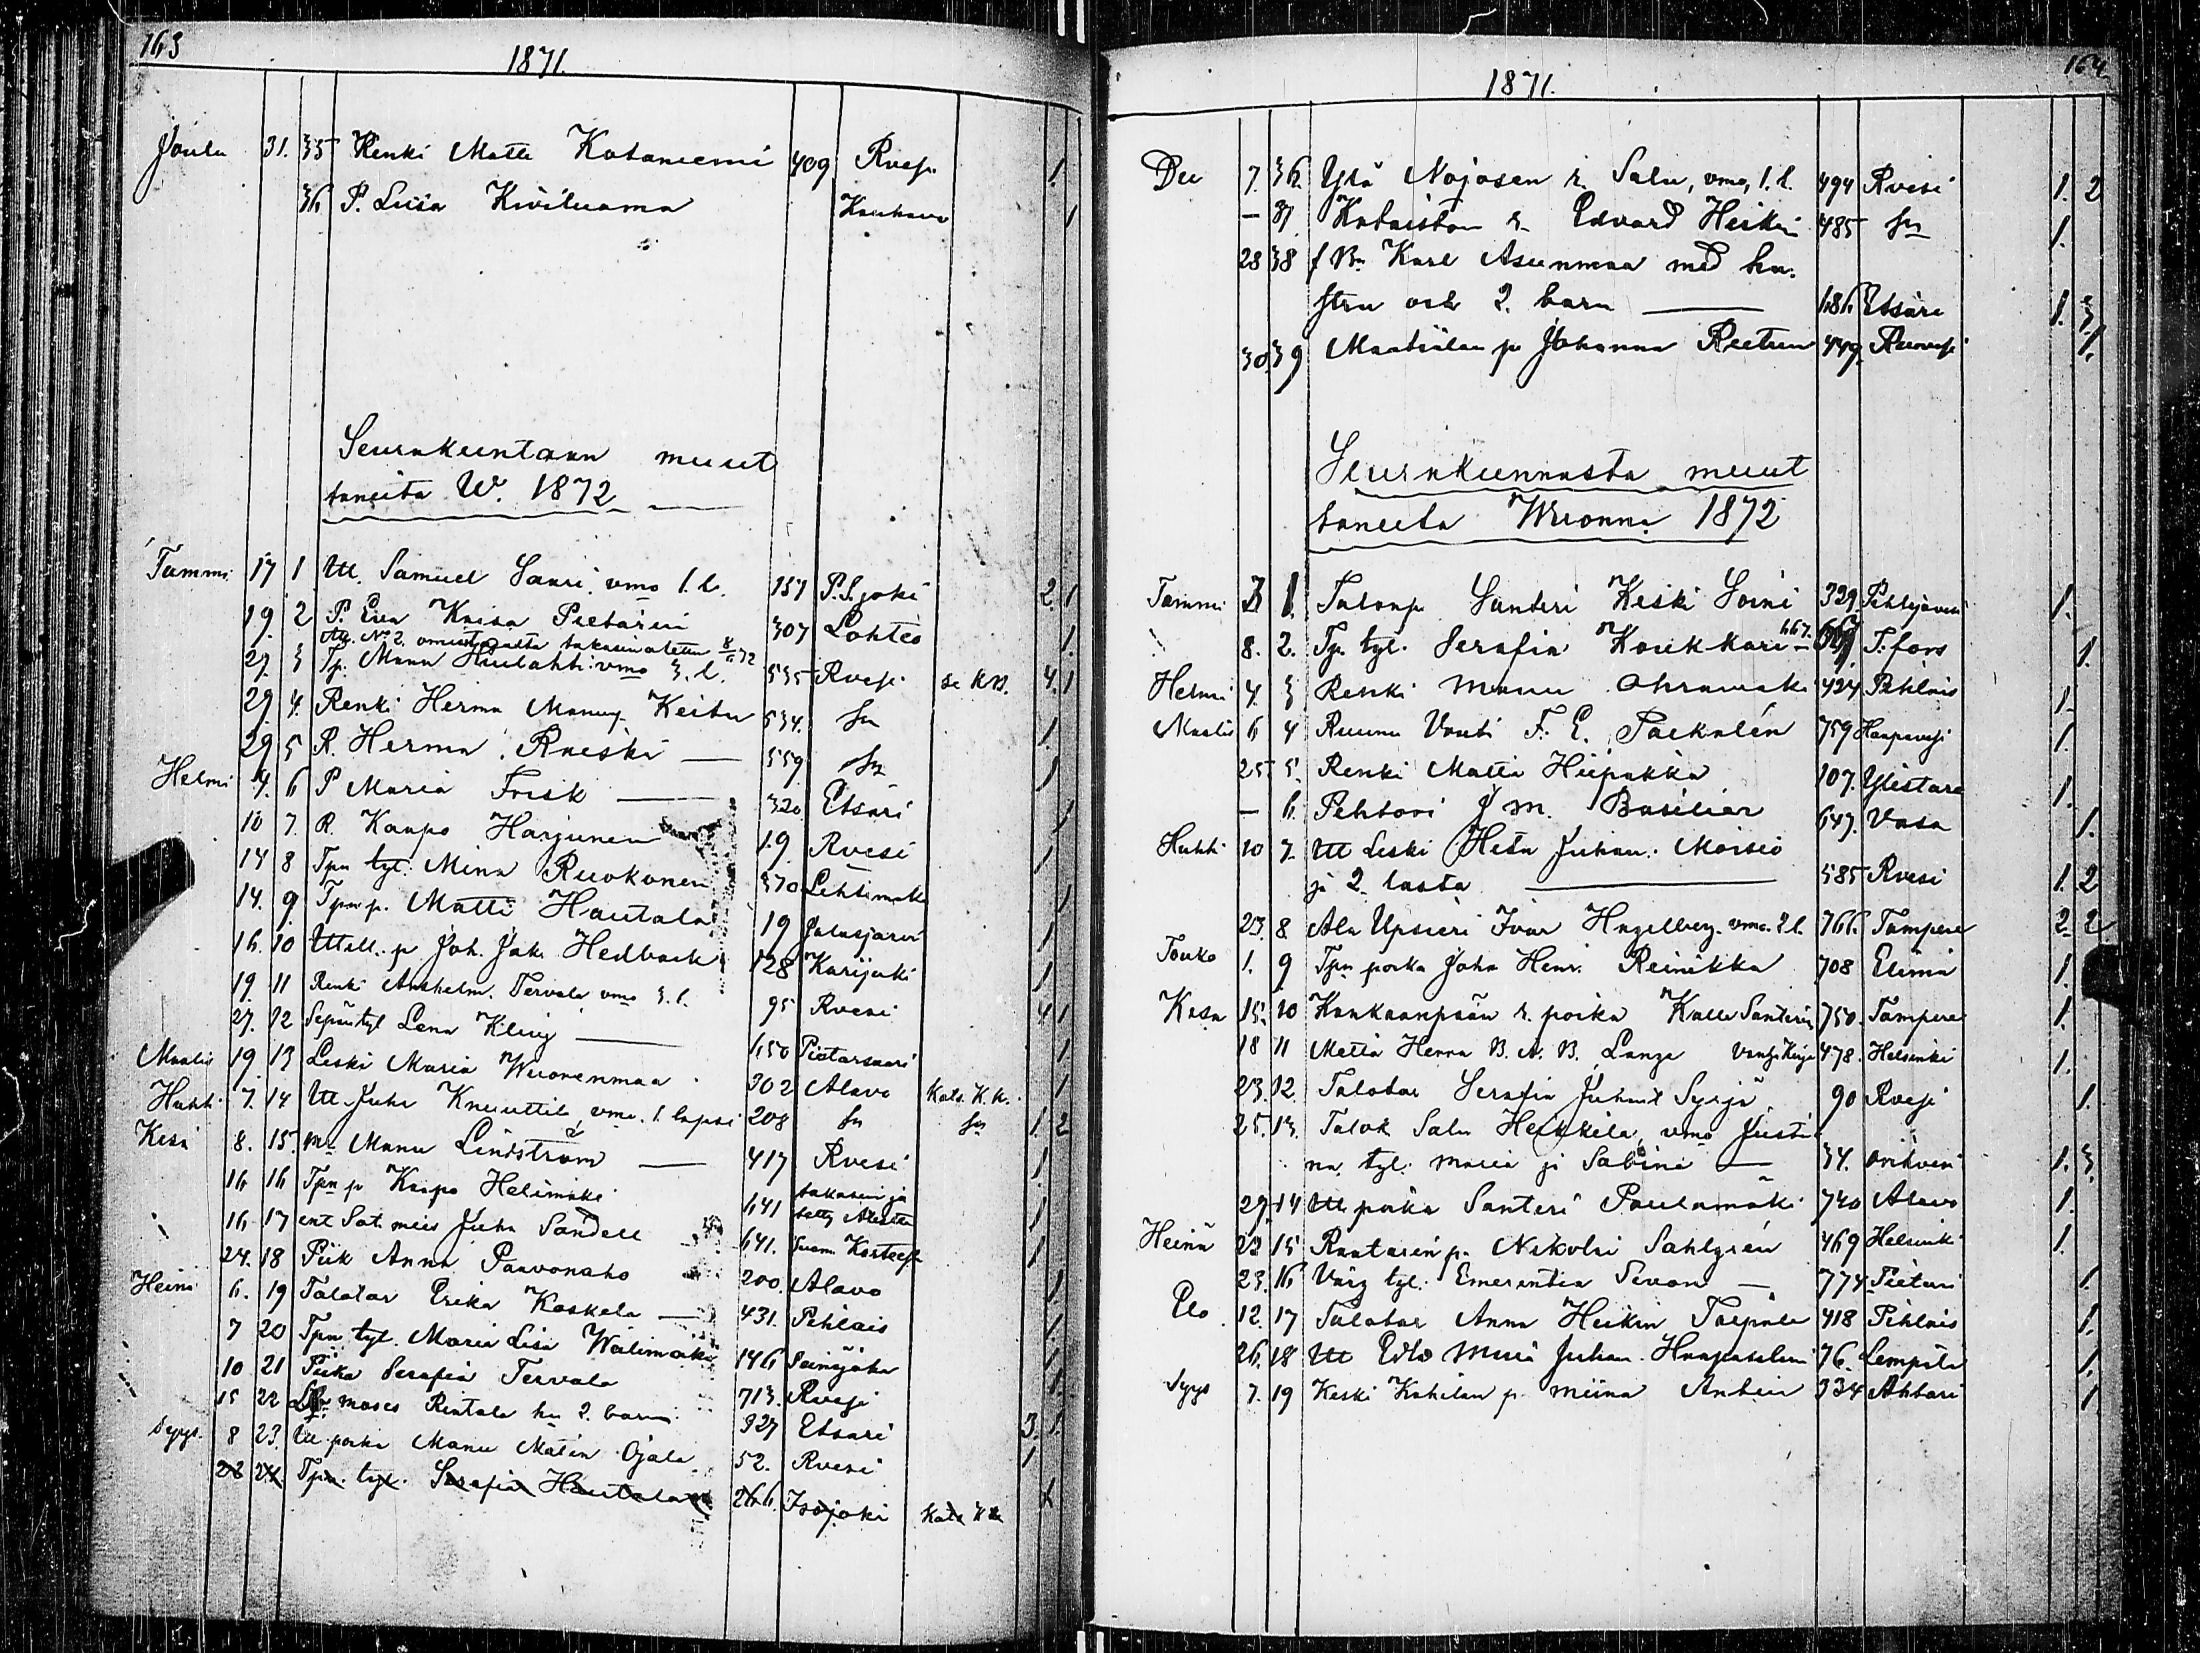 163
1871.
Joulu 31. 35 Renki Matti Kataniemi 409 Rvesi 1.
36 P. Luisa Kiviluoma Kauhava 1
Seurakuntaan muut
taneita W. 1872
Tammi 17 1 Itl. Samuel Saari vmo 1. l. 157 P.Sjoki 2. 1
19. 2 P. Eva Kaisa Pietarin 307 Lohtea 1.
N:o 2. takasin 8/2 72
29. 3 Tp. Manu vmo 3. l. 535 Rvesi se KB. 4. 1
29. 4. Renki Herma Manu Keitu 534. sn 1.
29 5 R. Herma Raiski 559 sn 1
Helmi 4. 6 P Maria Frisk 320 Etsäri 1
10 7. R. Kaapo Harjunen 19. Rvesi 1
14 8 Tpn tyt. Mina Ruokonen 370 Lehtimäki 1
14. 9. Tpn p. Matti Hautala 19 Jalasjärvi 1
16. 10 Itsell. p Joh. Jak. Hedback 128 Karijoki 1
19. 11 Renki Anshelm. Tervala vmo 3. l. 95 Rvesi 4 1
27. 12 Sepän tyt Lena Kling 650 Pietarsaari 1
Maalis 19. 13 Leski Maria Wuorenmaa 302 Alavo Kats. K.k. 1
Huhti 7. 14 Itl Juha Knuuttila vmo. 1. lapsi 208 sn sn 1. 2
Kesä 8. 15. Manu Lindström 417 Rvesi 1.
16 16 Tpn p Kaapo Helimäki 641 takasin ja 1
16. 17 ent Sat. mies Juha Sandell 641. 1
24. 18 Piik Anna Paavonaho 200. Alavo 1.
Heinä 6. 19 Talotar Erika Koskela 431. Pihlais 1.
7 20 Tpn tyt. Maria Lisa Walimäki 146 Seinäjoki 1
10 21 Piika Serafia Tervala 713. Rvesi 1.
15 22 Moses Rintala hu 2. barn 327 Etsäri 3. 1.
Syys. 8 23. Itl poika Manu Matin Ojala 52. Rvesi 1
28 24. Tpn. tyt. Serafia Hautala 266. Isojoki Kats K k 1
164.
1871.
De 7. 36. Ylä Nojosen r. Salu, vmo, 1. l. 494 Rvesi 1. 2
— 37. Kataiston r. Edvard Heikin 485 sn 1.
28 38 f Bn Karl Asunmaa med hu-
stru och 2. barn 686 Etsäri 1. 3.
30. 39 p Johanna Reetun 449. Ruovesi 1.
Seurakunnasta muut
taneita Wuonna 1872
Tammi 3 1. Talonp Santeri Keski Soini 329. Pihlajaveri 1.
8. 2. Tp. tyt. Serafia Koukkari 667. T.fors 1.
Helmi 4. 3 Renki Manu 424 Pihlais 1.
Maalis 6 4 Ruunu Vouti F. E. Packalén 759 Haapavesi 1.
25 5. Renki Matti Hiipakka 107. Ylistaro 1.
— 6. Pehtori J M. Basilier 647. Vasa 1.
Huhti 10 7. Itl Leski Heta Juhan. Moisio
ja 2. lasta 585 Rvesi 1. 2
23. 8 Ala Upsieri Ivar Hagelberg. vmo. 2 l. 766. Tampere 2. 2
Touko 1. 9 Tpn poika Joha Henr. Reinikka 708 Elimä 1.
Kesä 15. 10 Kankaanpään r. poika Kalle Santerin 750. Tampere 1.
18 11 Mettä Herra B. A. B. Lange 478. Helsinki 1.
23. 12. Talotar Serafia Juhant Syrjä 90 Rvesi 1.
25. 13. Talok Salu Heikkila, vmo Justi
na, tyt. Maria ja Sabina 34. Orihvesi 1. 3.
29. 14 Itl poika Santeri Paulamäki 740 Alavo 1.
Heinä 22 15 Raatarin p. Nikolai Sahlgrén 469 Helsinki 1.
23. 16 Värj tyt. Emerentia Sevon 774 Pietari 1.
Elo 12. 17 Talotar Anna Heikin Taipale 418 Pihlais 1.
26. 18 Itl Juhan. Haapasalmi 76. Lempälä 1.
Syys 7. 19 Keski Kahilan p. Miina Antin 334 Ahtäri 1